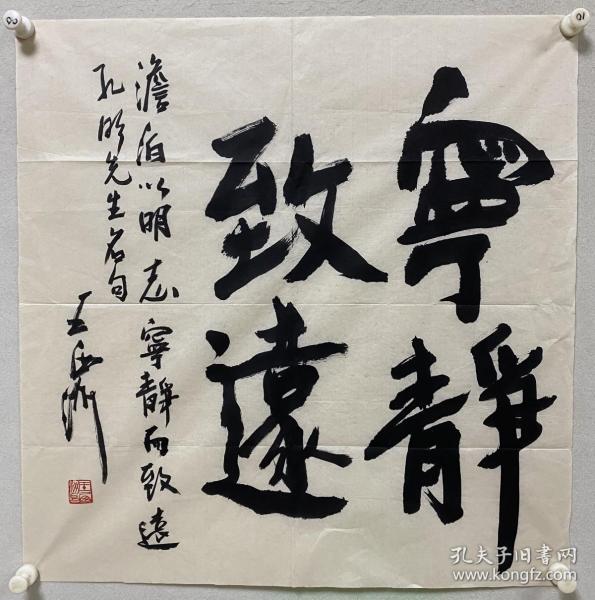 寧靜
致遠
澹泊以明志寧靜而致遠
孔明先生名句
王
孔夫子旧書网
www.kongfz.com